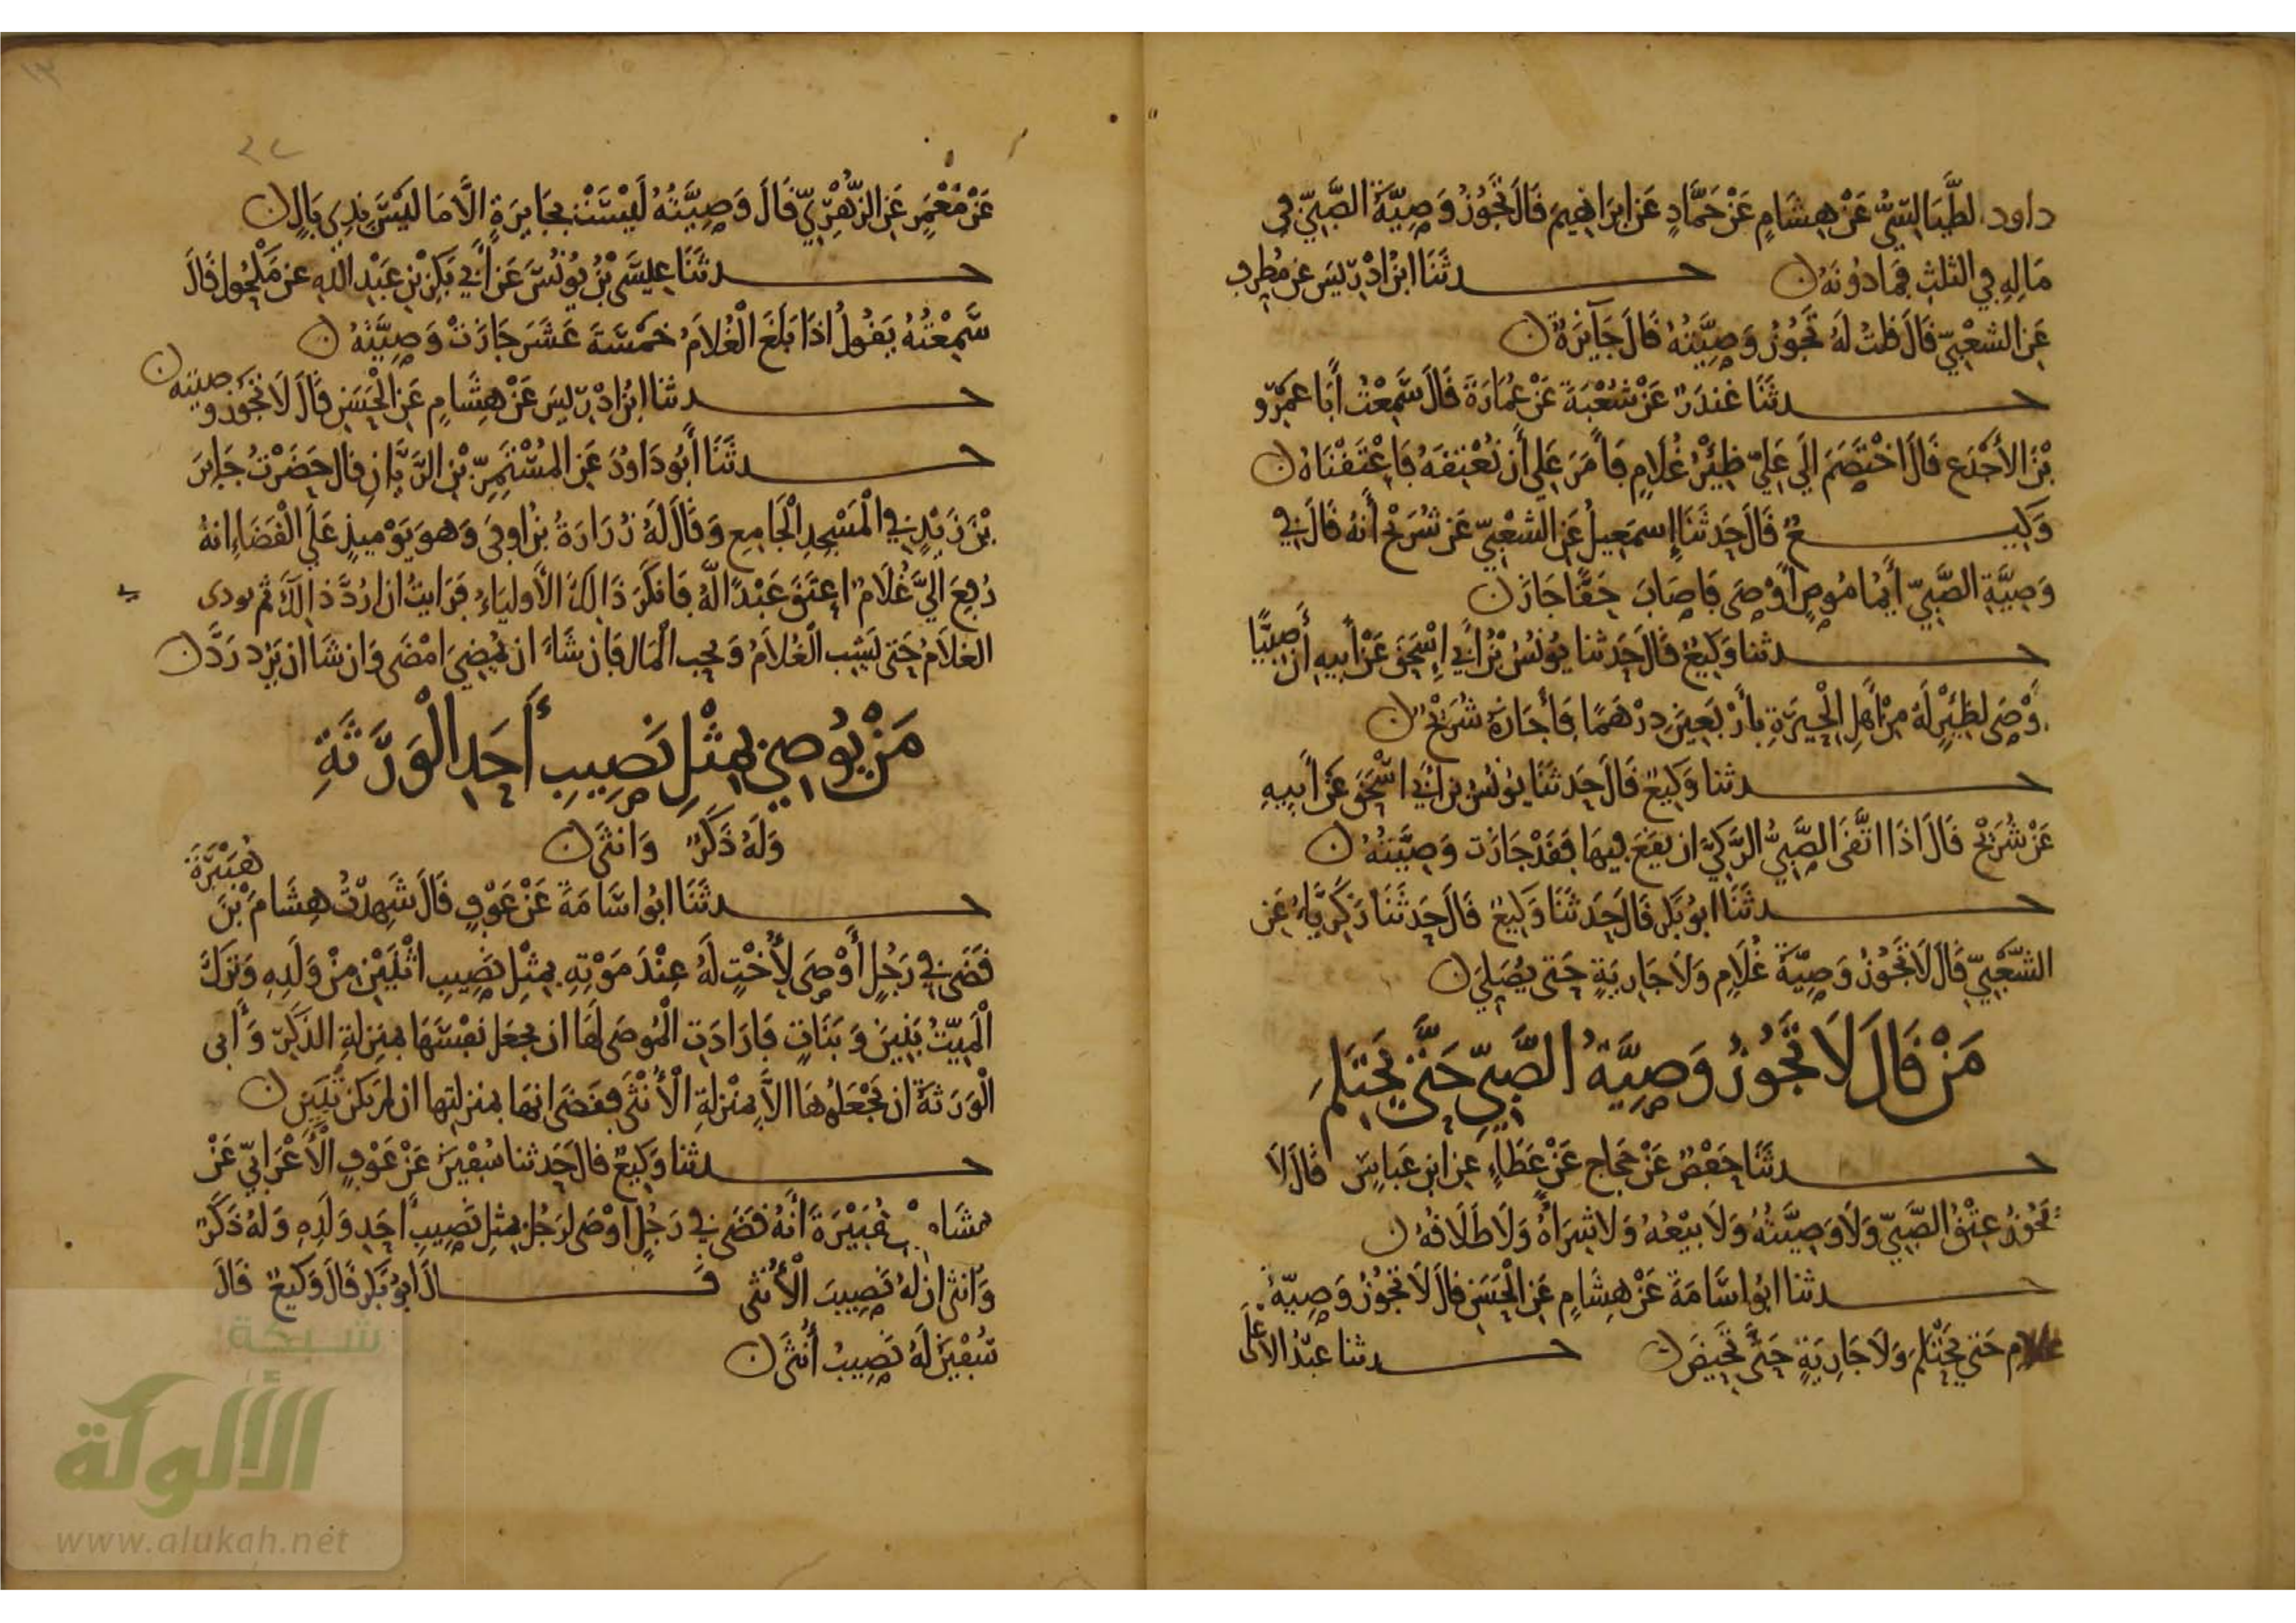 داود الطَّيَالِسِيُّ عَنْ هِشَامٍ عَنْ حَمَّادٍ عَن ابرَاهِيمَ قَالَ تَجُوزُ وَصِيَّةُ الصَّبِيّ في
مَالِهِ في الثلثِ فَمَا دُونَهُ حـدثَنَا ابنُ ادْرِيسَ عن مُطرفٍ
عَن الشعْبِيّ قَالَ قلتُ لَهُ تَجُوزُ وَصِيَّتُهُ قَالَ جَآيزَةٌ
حـدثَنَا غندَرٌ عَنْ شعْبَةَ عَنْ عُمَارَةَ قَالَ سَمِعْتُ أَبَا عَمرٍو
بْنَ الأَجْدَعِ قَالَ اخْتَصَمَ الَي عَليّ ظِئرُ غُلَامٍ فَأَمَرَ عَلي أَن نُعْتِقَهُ فَاعْتَقْنَاهُ
وَكِيـعٌ قَالَ حَدثَنَا إِسمَعِيلُ عَن الشعْبِيّ عَن شُرَيْحٍ أَنهُ قَالَ في
وَصِيَّةِ الصَّبِيّ أَيُّمَا مُوصٍ أَوْصَى فَاصَابَ حَقًّا جَازَ
حـدثنا وَكِيعٌ قَالَ حَدثنا يُونُسُ بْنُ أَبي إِسْحَقَ عَنْ أَبِيهِ أَن صَبِيًّا
أَوْصَى لظِئْرٍ لَهُ مِنْ أَهلِ الْحِيرَةِ بأَرْبَعِينَ دِرْهَمًا فَأَجَازَهُ شُرَيْحٌ
حـدثنا وَكِيعٌ قَالَ حَدثَنَا يُونُسُ بن ابي اسْحَقَ عَن أَبِيهِ
عَنْ شُرَيْحٍ قَالَ اذَا اتَّقَى الصَّبِيُّ الرَّكِيَّ ان يَقَعَ فِيهَا فَقَدْ جَازَت وَصِيَّتُهُ
حـدثَنَا ابوُ بَكر قَالَ حَدثَنَا وَكِيعٌ قَالَ حَدثَنَا زَكَرِيَّاءُ عَن
الشَّعْبِيّ قَالَ لَا تَجُوزُ وَصِيَّةُ غُلَامٍ وَلَا جَارِيَةٍ حَتى يُصَلِيَ
مَنْ قَالَ لَا تَجُوزُ وَصِيَّةُ الصَّبِيّ حَتَّى يَحْتَلِمَ
حـدثَنَا حَفْصٌ عَنْ حَجاجٍ عَنْ عَطَاءٍ عَن ابنِ عَباسٍ قَالَ لَا
تَجُوزُ عِتْقُ الصَّبِيّ وَلَا وَصِيَّتُهُ وَلَا بَيْعُهُ وَلَا شِرَاهُ وَلَا طَلَاقُهُ
حـدثنا ابُو اسَّامَةَ عَنْ هِشَامٍ عَن الْحَسَنِ قَالَ لَا تَجُوزُ وَصِيّةُ
غلامٍ حَتي يَحْتَلِمَ وَلَا جَارِيَةٍ حَتَّى تَحِيضَ حـدثنا عَبْدُ الاعْلَى
عَنْ مَعْمَرٍ عَن الزُّهْرِيّ قَالَ وَصِيَّتُهُ لَيْسَتْ بجَايزَةٍ الَّا مَا لَيْسَ بِذِي بَالٍ
حـدثَنَا عِيسَى بْنُ يُونُسَ عَن أَبي بَكرِ بْنِ عَبْدِ اللهِ عَن مَكْحُولٍ قَالَ
سَمِعْتُهُ يَقُولُ اذَا بَلَغَ الْغُلَامُ خَمْسَةَ عَشَرَ جَازَتْ وَصِيَّتُهُ
حـدثنا ابنُ ادْرِيسَ عَنْ هِشَامٍ عَن الْحَسَنِ قَالَ لَا تَجُوزُ وصيته
حـدثَنَا أَبُو دَاوُدَ عَن المُسْتَمِرّ بْنِ الرَّيَّانِ قال حَضَرْتُ جَابِرَ
بْنَ زَيْدٍ في الْمَسْجِدِ الْجَامِعِ وَقَالَ لَهُ زُرَارَةُ بنُ اوفَى وَهوَ يَوْمِيذٍ عَلَي الْقَضَاءِ انهُ
رُفِعَ الَيَّ غُلَامٌ اعتَقَ عَبْدًا لَهُ فَانكَرَ ذَالِكَ الأَولِيَاءُ فَرَايتُ ان اردَّ ذَالِكَ ثم يودى
الغلَامُ حَتى يَشِب الْغُلَامُ وَيُحِب الْمَال فَان شَاءَ ان يُمْضِيَ امْضَى وَان شَا ان يَرُد رَدَّ
مَنْ يُوصِي بِمِثْلِ نَصِيبِ أَحَدِ الْوَرَثَةِ
وَلَهُ ذَكَرٌ وَانثَى
حـدثَنَا ابُو اسَّامَةَ عَنْ عَوْفٍ قَالَ شَهِدْتُ هِشَامَ بْنَ هُبَيْرَةَ
قَضَى في رَجُلٍ أَوْصَى لِأُخْتٍ لَهُ عِنْدَ مَوْتِهِ بِمِثْلِ نَصِيبِ اثْنَيْنِ مِنْ وَلَدِهِ وَتَرَكَ
الْمَيِّتُ بَنِينَ وَبَنَاتٍ فَارَادَتِ الْمُوصَى لَهَا ان تجعَل نفسَهَا بمَنزِلةِ الذَكَرِ وَأَبى
الْوَرَثَةُ ان تَجْعَلُهَا الَّا بِمَنْزِلةِ الْأُنْثَى فَقَضَى انهَا بمَنزِلتها ان لم تكن تُبَيَّن
حـدثنا وَكِيعٌ قال حَدثنا سُفْيَنَ عَنْ عَوْفٍ الْأَعْرَابِيّ عَنْ
هشَام بْن هُبَيْرَةَ أَنَّهُ قَضَى في رَجُلٍ أَوْصَى لِرَجُلٍ بمِثلِ نَصِيبِ أَحَدِ وَلَدِهِ وَلَهُ ذَكَرٌ
وَأُنثى ان لَهُ نَصِيبَ الْأُنثَى قَـالَ ابوُ بَكر قَالَ وَكِيعٌ قَالَ
سُفْيَنُ لَهُ نَصِيبُ أُنثَى
شبكة
الألوكة
www.alukah.net